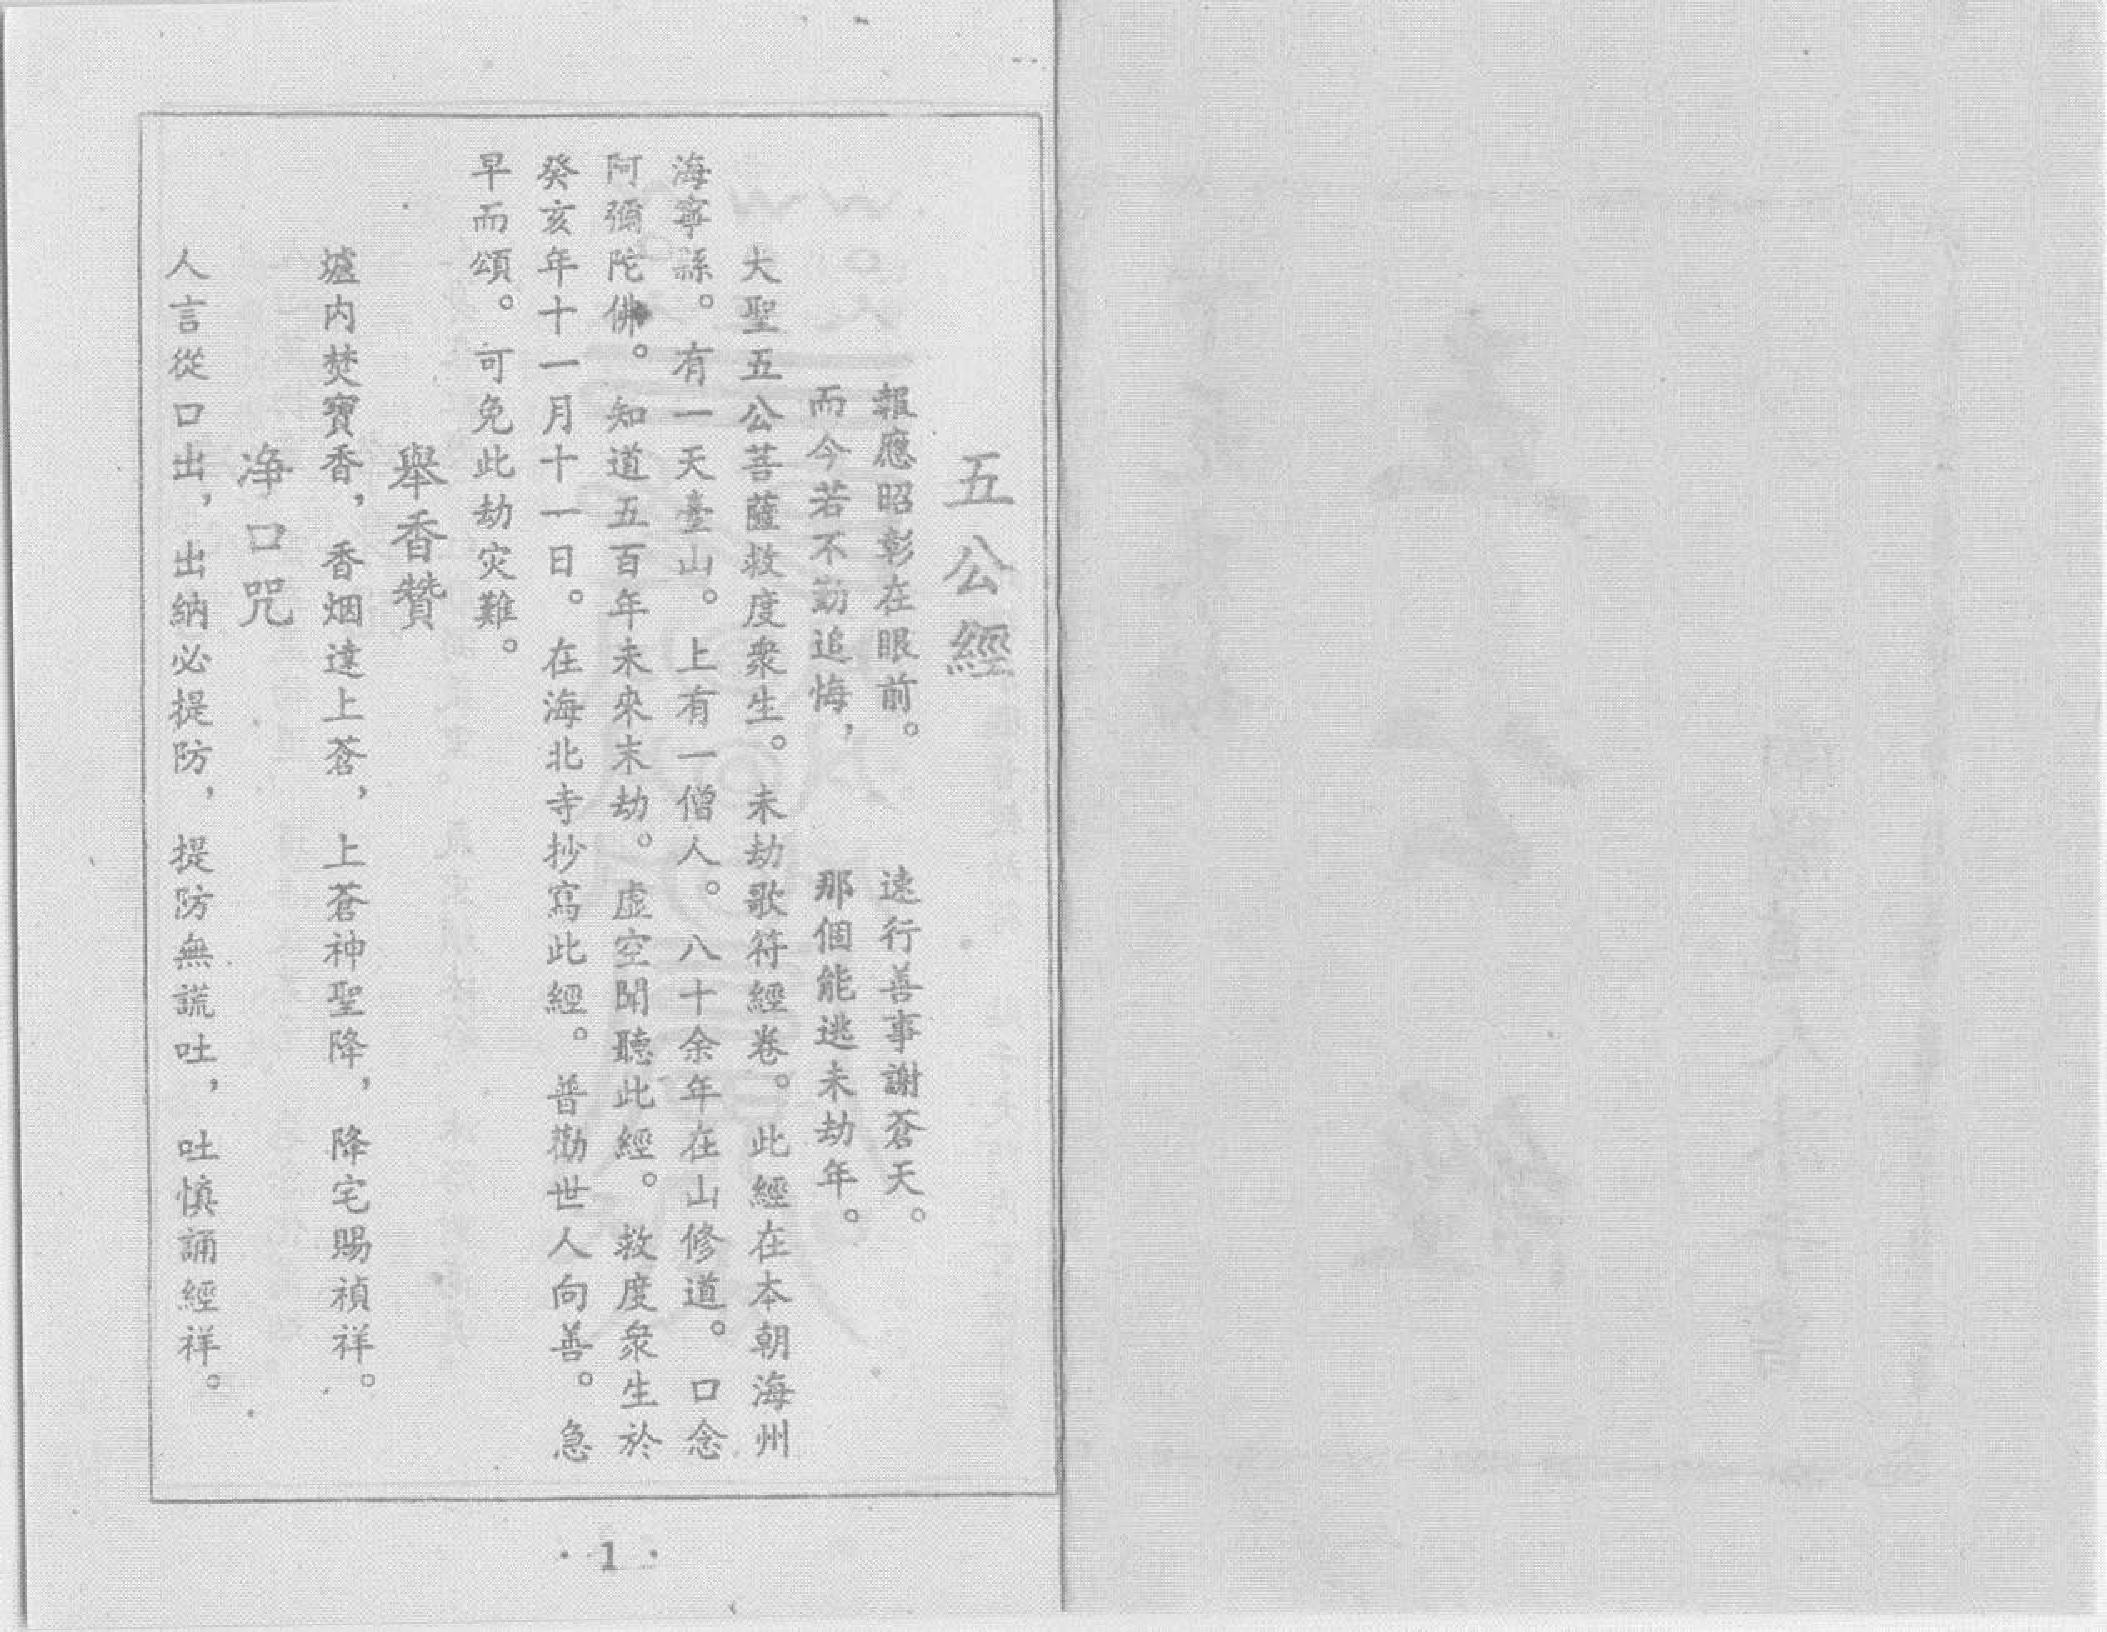 五公經
報應昭彰在眼前。 遠行善事謝蒼天。
而今若不勤追悔， 那個能逃末劫年。
大聖五公菩薩救度衆生。末劫歌符經卷。此經在本朝海州
海寧縣。有一天臺山。上有一僧人。八十余年在山修道。口念
阿彌陀佛。知道五百年未來末劫。虛空聞聽此經。救度衆生於
癸亥年十一月十一日。在海北寺抄寫此經。普勸世人向善。急
早而頌。可免此劫灾難。
舉香贊
爐内焚寶香，香烟達上蒼，上蒼神聖降，降宅賜禎祥。
净口咒
人言從口出，出納必提防，提防無謊吐，吐慎誦經祥。
·1·